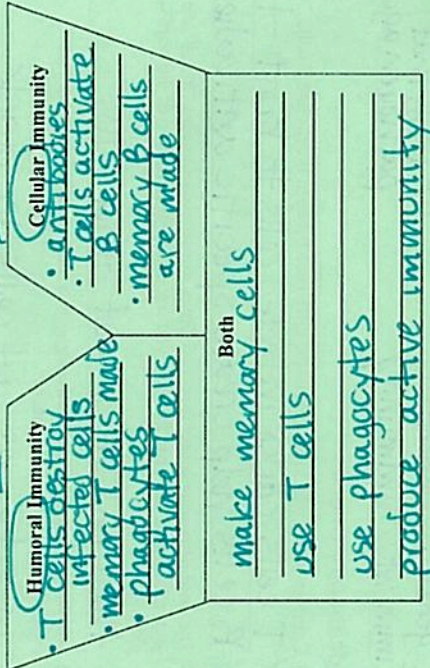 Humoral Immunity
• T cells destroy
infected cells
• memory T cells made
• phagocytes
activate T cells
Cellular Immunity
• antibodies
• T cells activate
B cells
• memory B cells
are made
Both
make memory cells
use T cells
use phagocytes
produce active immunity